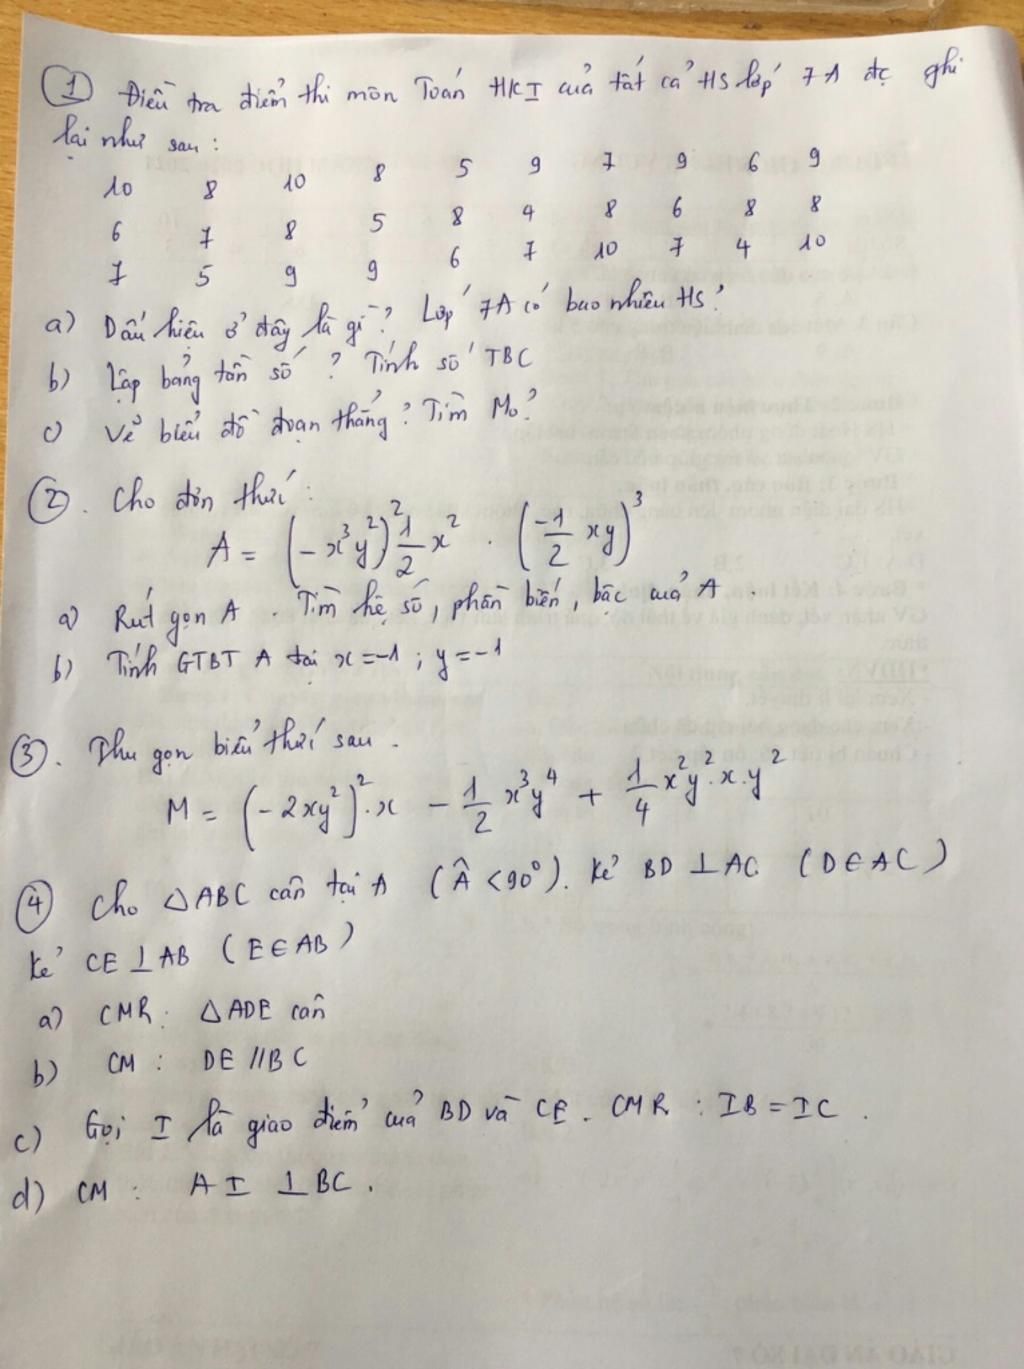 ① Điều tra điểm thi môn Toán HKI của tất cả HS lớp 7A đc ghi
lại như sau :
10 8 10 8 5 9 7 9 6 9
6 7 8 5 8 4 8 6 8 8
7 5 9 9 6 7 10 7 4 10
a) Dấu hiệu ở đây là gì ? Lớp 7A có bao nhiêu HS ?
b) Lập bảng tần số ? Tính số TBC
c) Vẽ biểu đồ đoạn thẳng ? Tìm M₀ ?
②. Cho đơn thức :
A = (-x³y²)² 1/2 x² . (-1/2 xy)³
a) Rút gọn A . Tìm hệ số, phần biến, bậc của A .
b) Tính GTBT A tại x = -1 ; y = -1
③. Thu gọn biểu thức sau .
M = (-2xy²)².x - 1/2 x³y⁴ + 1/4 x²y².x.y²
④ Cho △ABC cân tại A (Â < 90°). Kẻ BD ⊥ AC (D ∈ AC)
Kẻ CE ⊥ AB (E ∈ AB)
a) CMR : △ADE cân
b) CM : DE // BC
c) Gọi I là giao điểm của BD và CE . CMR : IB = IC .
d) CM : AI ⊥ BC .